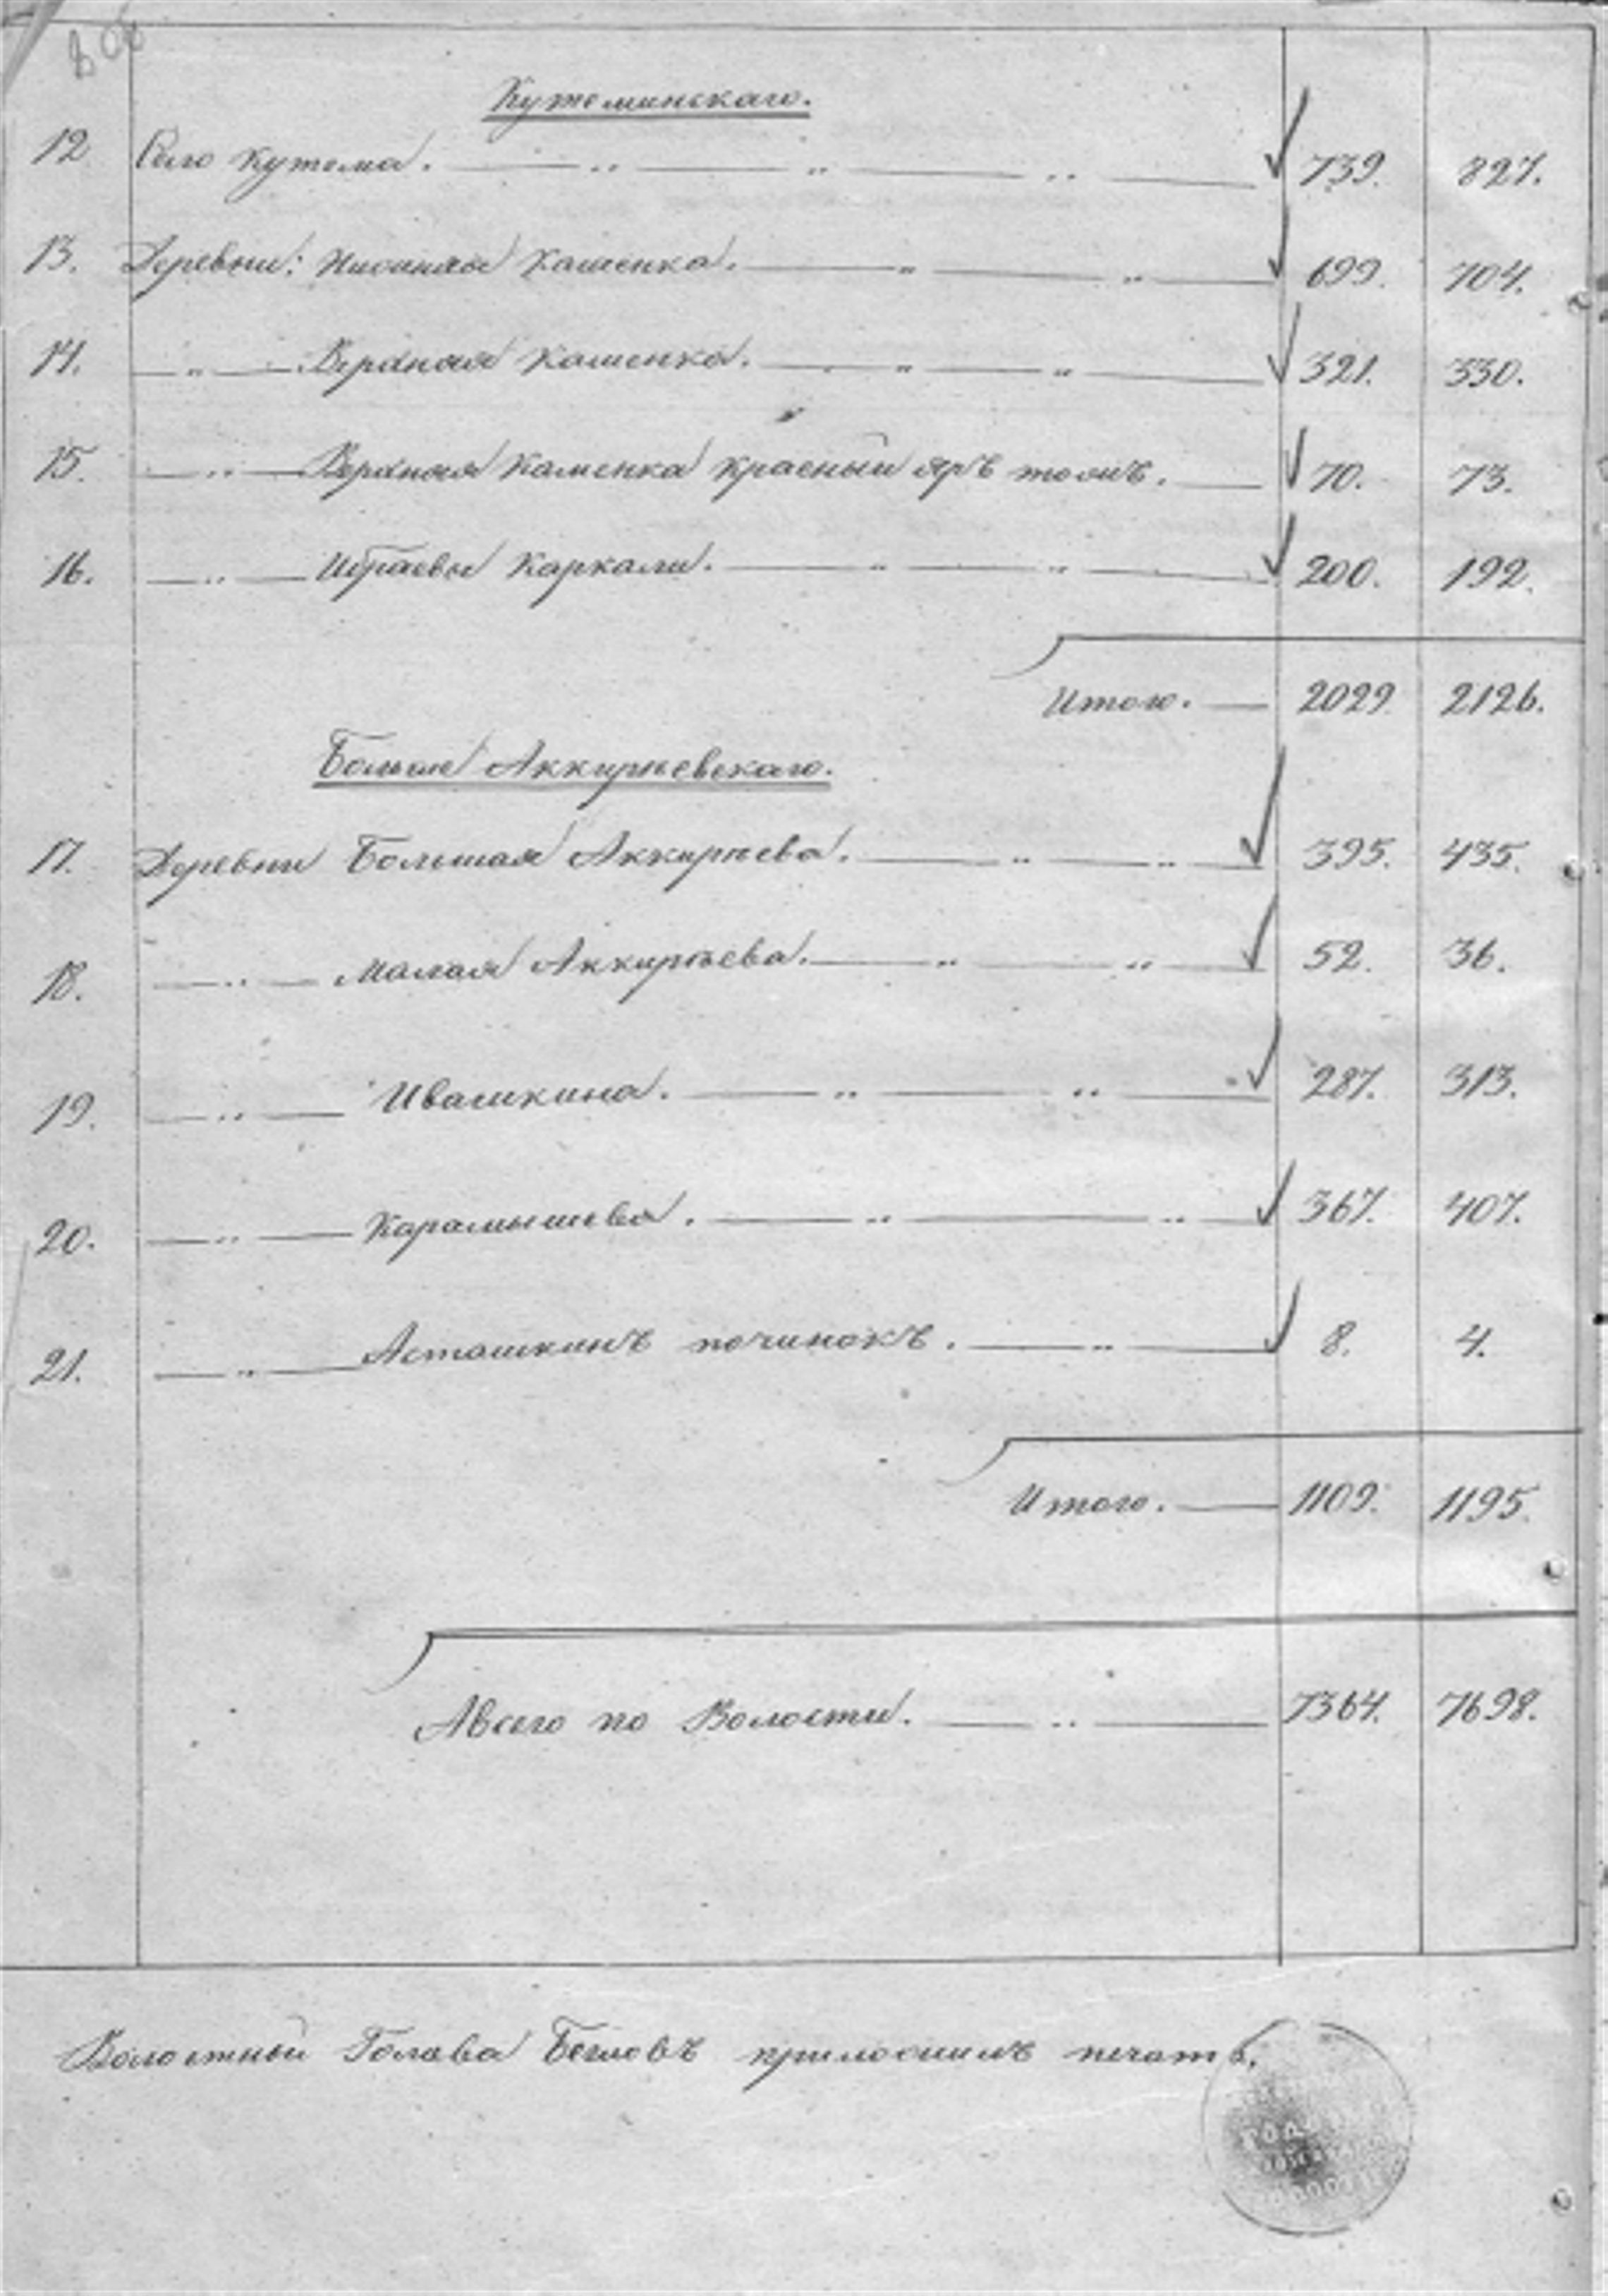 Кутеминскаго.
12 Село Кутема. 739. 827.
13. Деревни: Нисшняя Каменка. 699. 704.
14. Верхняя Каменка. 321. 330.
15. Верхняя Каменка Красный яръ тожъ. 70. 73.
16. Ибраевы Каркали. 200. 192.
Итого. 2029 2126.
Больше Аккиреевскаго.
17. Деревни Большая Аккиреева. 395. 435.
18. Малая Аккиреева. 52. 36.
19. Ивашкина. 287. 313.
20. Карамышева. 367. 407.
21. Асташкинъ починокъ. 8. 4.
Итого. 1109. 1195.
А всего по Волости. 7364. 7698.
Волостный Голова Бегловъ приложилъ печать.